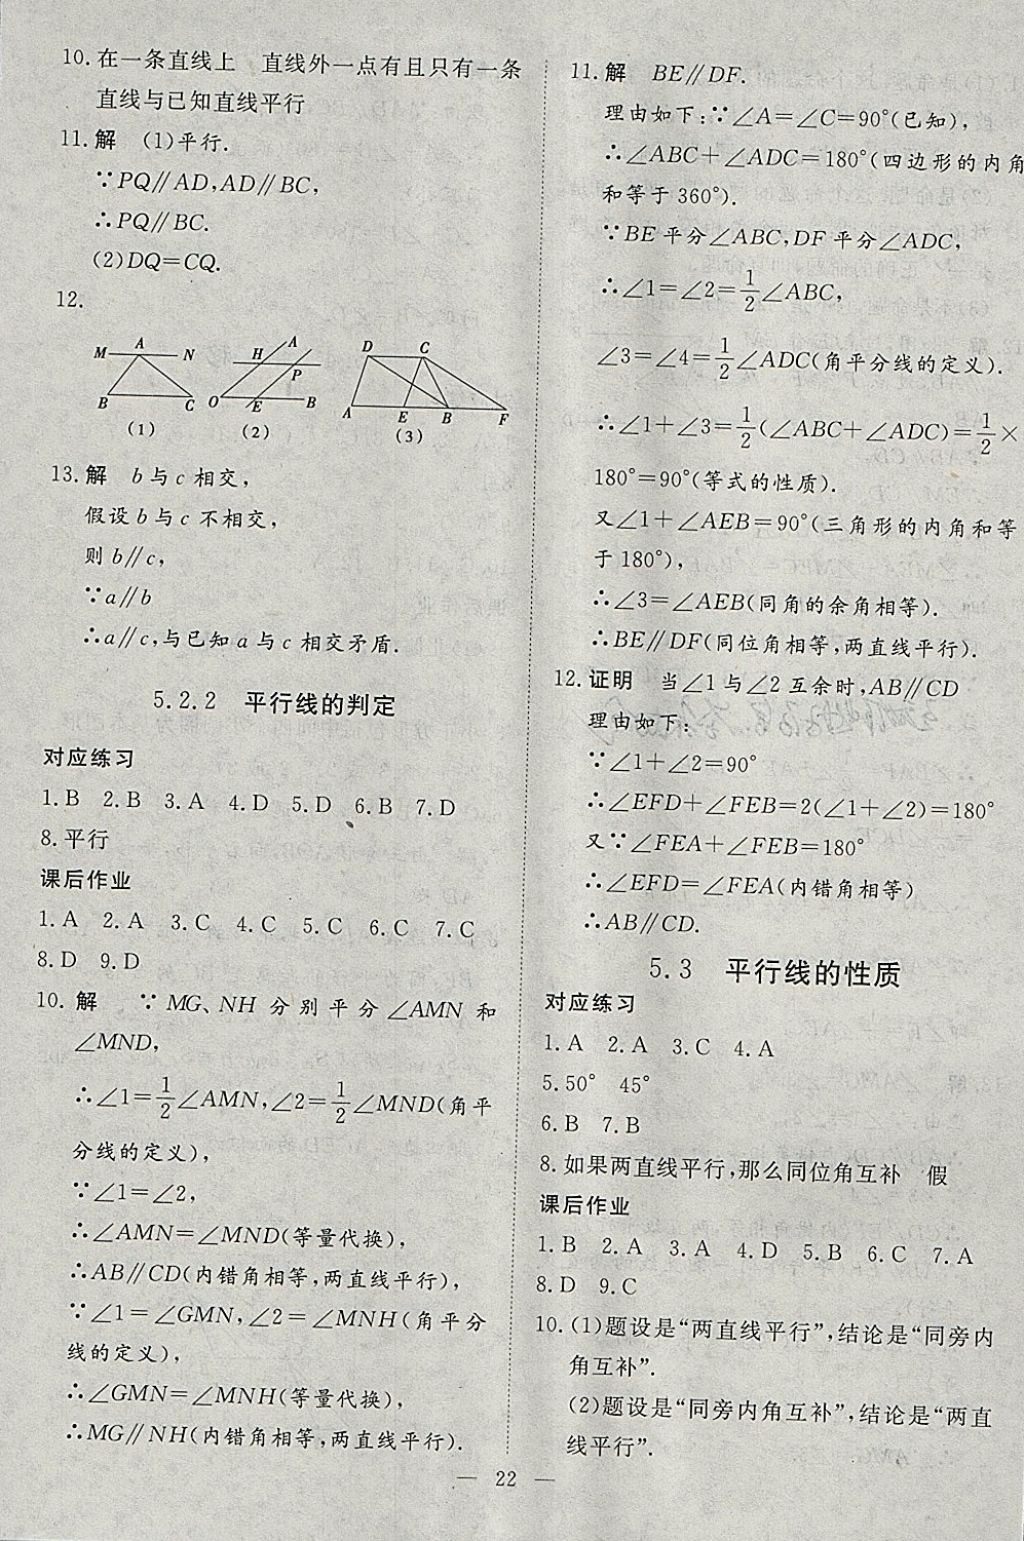 10. 在一条直线上　直线外一点有且只有一条
直线与已知直线平行
11. 解　(1)平行.
∵PQ∥AD,AD∥BC,
∴PQ∥BC.
(2)DQ=CQ.
12.
M A N B C
(1)
H A P O E B
(2)
D C A E B F
(3)
13. 解　b与c相交,
假设b与c不相交,
则b∥c,
∵a∥b
∴a∥c,与已知a与c相交矛盾.
5.2.2　平行线的判定
对应练习
1. B　2. B　3. A　4. D　5. D　6. B　7. D
8. 平行
课后作业
1. A　2. A　3. C　4. C　5. C　6. C　7. C
8. D　9. D
10. 解　∵MG、NH分别平分∠AMN和
∠MND,
∴∠1=1/2∠AMN,∠2=1/2∠MND(角平
分线的定义),
∵∠1=∠2,
∴∠AMN=∠MND(等量代换),
∴AB∥CD(内错角相等,两直线平行),
∵∠1=∠GMN,∠2=∠MNH(角平分
线的定义),
∴∠GMN=∠MNH(等量代换),
∴MG∥NH(内错角相等,两直线平行).
11. 解　BE∥DF.
理由如下:∵∠A=∠C=90°(已知),
∴∠ABC+∠ADC=180°(四边形的内角
和等于360°).
∵BE平分∠ABC,DF平分∠ADC,
∴∠1=∠2=1/2∠ABC,
∠3=∠4=1/2∠ADC(角平分线的定义).
∴∠1+∠3=1/2(∠ABC+∠ADC)=1/2×
180°=90°(等式的性质).
又∠1+∠AEB=90°(三角形的内角和等
于180°),
∴∠3=∠AEB(同角的余角相等).
∴BE∥DF(同位角相等,两直线平行).
12. 证明　当∠1与∠2互余时,AB∥CD
理由如下:
∵∠1+∠2=90°
∴∠EFD+∠FEB=2(∠1+∠2)=180°
又∵∠FEA+∠FEB=180°
∴∠EFD=∠FEA(内错角相等)
∴AB∥CD.
5.3　平行线的性质
对应练习
1. A　2. A　3. C　4. A
5. 50°　45°
6. B　7. B
8. 如果两直线平行,那么同位角互补　假
课后作业
1. B　2. A　3. A　4. D　5. B　6. C　7. A
8. D　9. C
10. (1)题设是“两直线平行”,结论是“同旁内
角互补”.
(2)题设是“同旁内角互补”,结论是“两直
线平行”.
— 22 —